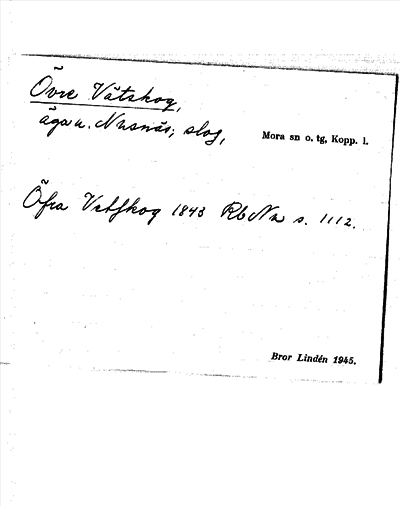 Övre Våtskog,
ägau. Nusnäs; slog,
Mora sn o. tg, Kopp. l.
Öfra Vatskog 1843 RbNa s. 1112.
Bror Lindén 1945.